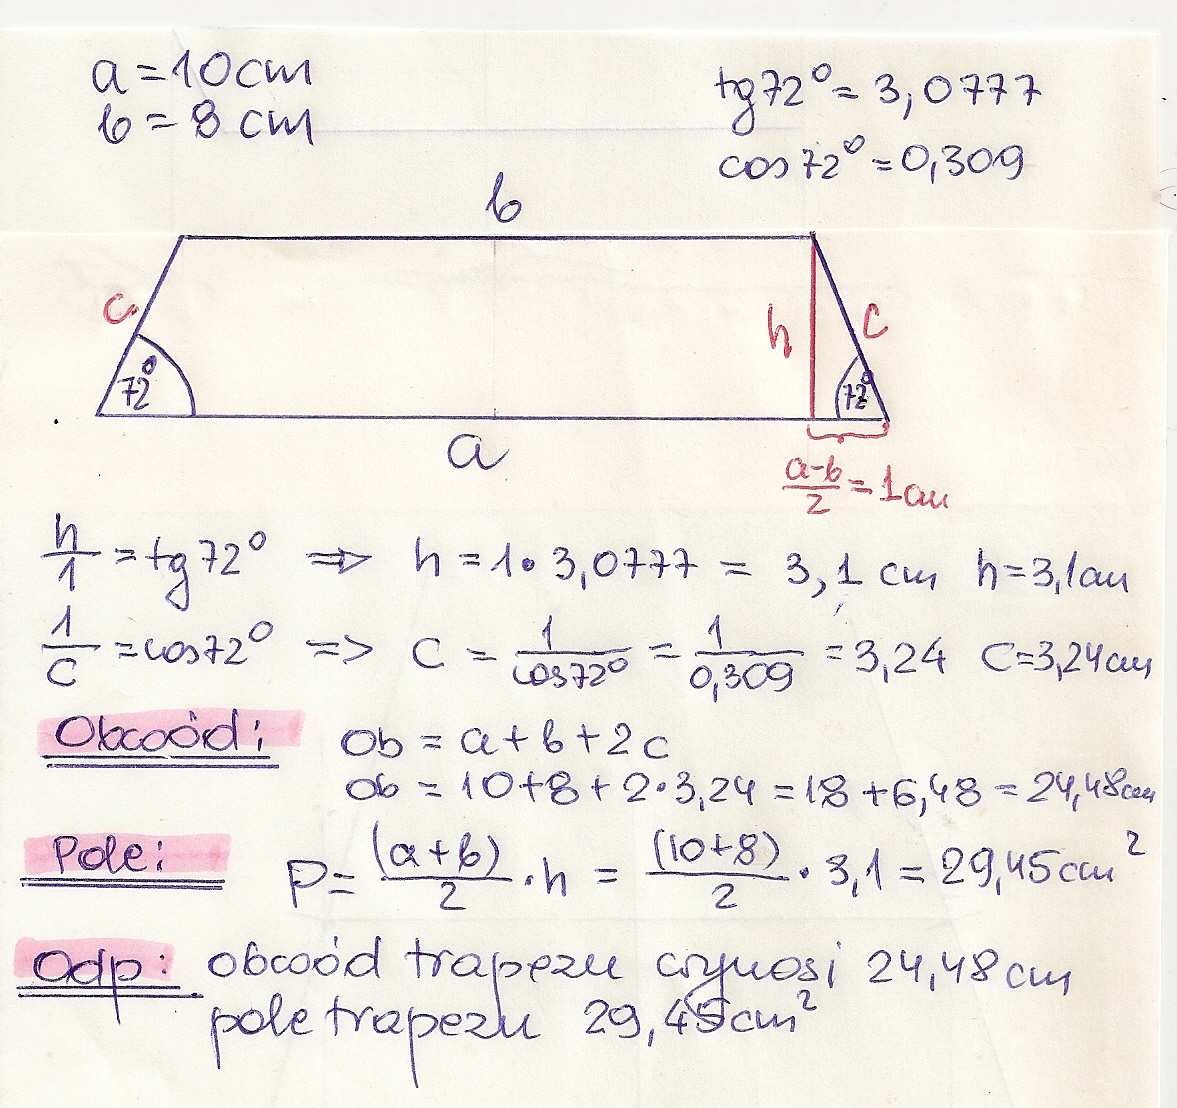 a = 10 cm
b = 8 cm
tg 72° = 3,0777
cos 72° = 0,309
b
c
h
c
72°
72°
a
(a-b)/2 = 1 cm
h/1 = tg 72° => h = 1 · 3,0777 = 3,1 cm h = 3,1 cm
1/c = cos 72° => c = 1/cos 72° = 1/0,309 = 3,24 c = 3,24 cm
Obwód: Ob = a + b + 2c
Ob = 10 + 8 + 2 · 3,24 = 18 + 6,48 = 24,48 cm
Pole: P = (a+b)/2 · h = (10+8)/2 · 3,1 = 29,45 cm²
Odp: obwód trapezu wynosi 24,48 cm
pole trapezu 29,45 cm²